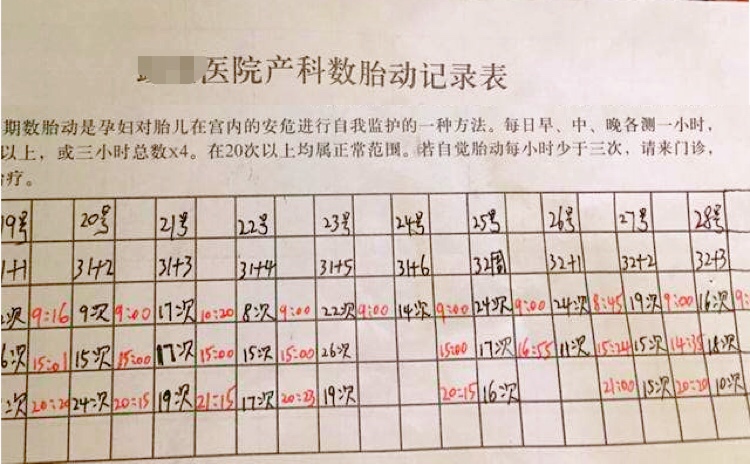 医院产科数胎动记录表
期数胎动是孕妇对胎儿在宫内的安危进行自我监护的一种方法。每日早、中、晚各测一小时，
以上，或三小时总数X4。在20次以上均属正常范围。若自觉胎动每小时少于三次，请来门诊，
疗。
19号 20号 21号 22号 23号 24号 25号 26号 27号 28号
31+1 31+2 31+3 31+4 31+5 31+6 32周 32+1 32+2 32+3
次 9:16 9次 9:00 17次 10:20 8次 9:00 22次 9:00 14次 9:00 24次 9:00 24次 8:45 19次 9:00 16次 9:
6次 15:01 15次 15:00 17次 15:00 15次 15:00 26次 15:00 17次 16:55 11次 15:24 15次 14:35 18次
次 20:20 24次 20:15 19次 21:15 17次 20:23 19次 20:15 16次 21:00 15次 20:20 10次